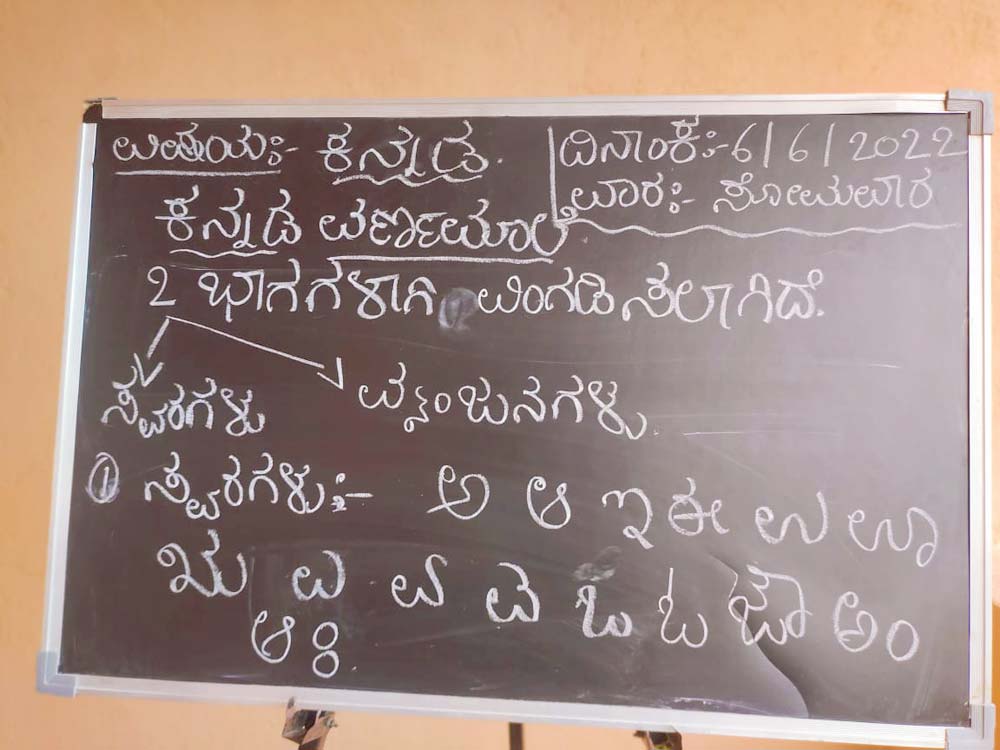 ವಿಷಯ:- ಕನ್ನಡ. ದಿನಾಂಕ:-6/6/2022
ವಾರ:- ಸೋಮವಾರ
ಕನ್ನಡ ವರ್ಣಮಾಲೆ
2 ಭಾಗಗಳಾಗಿ ವಿಂಗಡಿಸಲಾಗಿದೆ.
ಸ್ವರಗಳು ವ್ಯಂಜನಗಳು
① ಸ್ವರಗಳು:- ಅ ಆ ಇ ಈ ಉ ಊ
ಋ ಎ ಏ ಐ ಒ ಓ ಔ ಅಂ
ಅಃ